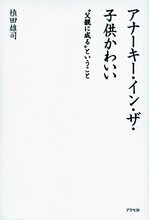 アナーキー・イン・ザ・
子供かわいい
“父親に成る”ということ
槙田雄司
アスペクト